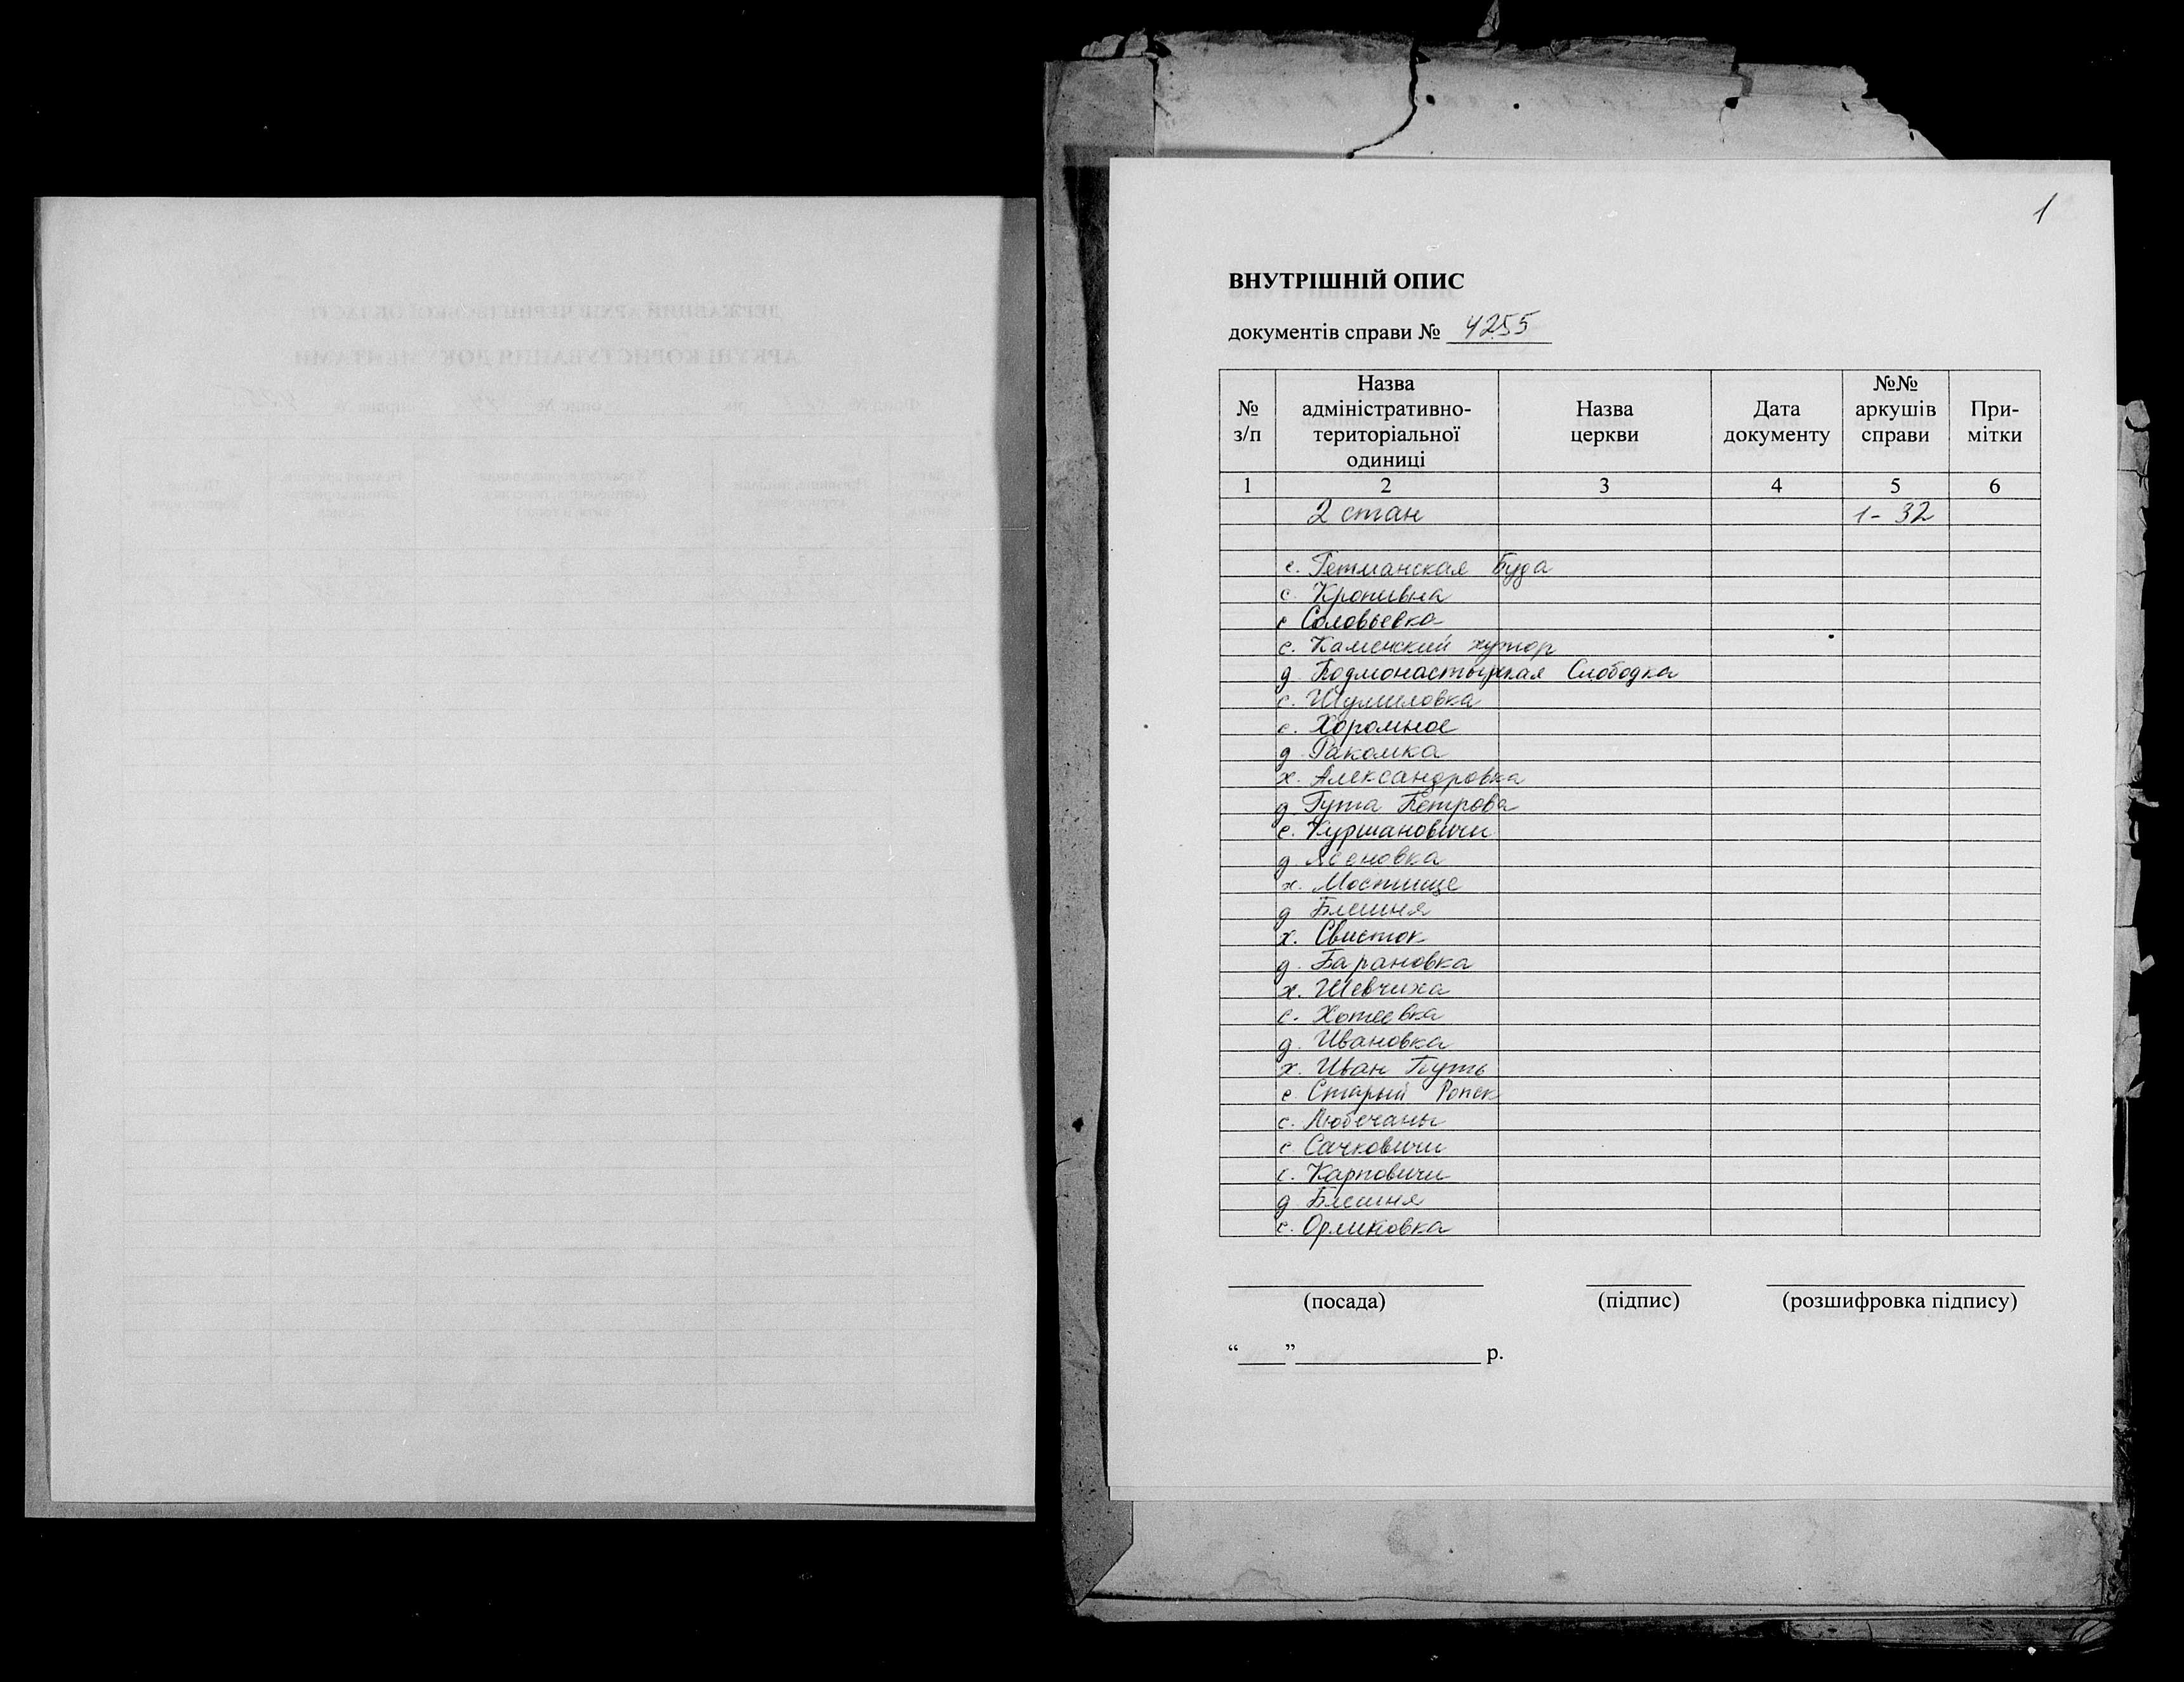 1
ВНУТРІШНІЙ ОПИС
документів справи № 4255
№ з/п
Назва адміністративно-територіальної одиниці
Назва церкви
Дата документу
№№ аркушів справи
При-мітки
1 2 3 4 5 6
2 стан 1-32
с. Гетманская Буда
с. Кропивна
с Соловьевка
с. Каменский хутор
д. Подмонастырская Слободка
с. Шумиловка
с. Хоромное
д. Ракомка
х. Александровка
д. Гута Петрова
с. Куршановичи
д Ясеновка
х. Мостище
д Блешня
х. Свисток
д. Барановка
х. Шевчиха
с. Хотеевка
д. Ивановка
х. Иван Путь
с Старый Ропск
с. Любечаны
с Сачковичи
с. Карповичи
д Блешня
с. Орликовка
(посада) (підпис) (розшифровка підпису)
“____”________________ р.